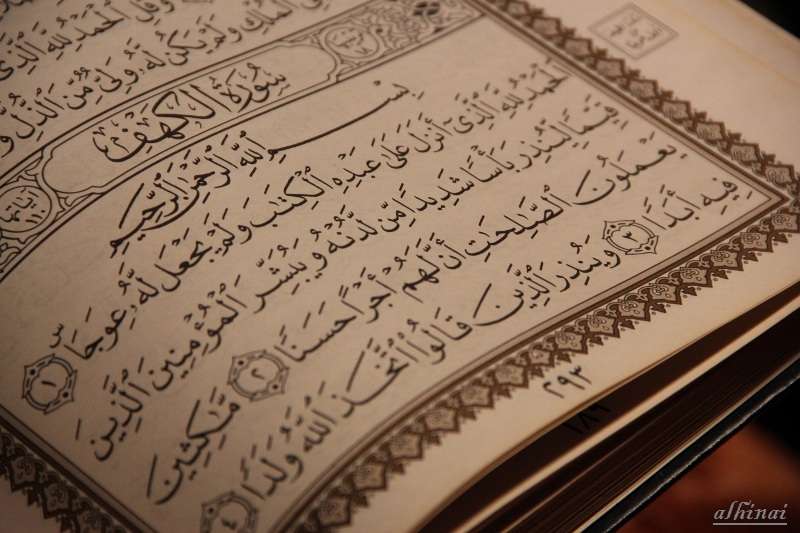 ٱلْمُلْكِ وَلَمْ يَكُن لَّهُۥ وَلِىٌّ مِّنَ ٱلذُّلِّ وَ
وَقُلِ ٱلْحَمْدُ لِلَّهِ ٱلَّذِى
سُورَةُ الكَهْفِ
بِسْمِ ٱللَّهِ ٱلرَّحْمَٰنِ ٱلرَّحِيمِ
ٱلْحَمْدُ لِلَّهِ ٱلَّذِىٓ أَنزَلَ عَلَىٰ عَبْدِهِ ٱلْكِتَٰبَ وَلَمْ يَجْعَل لَّهُۥ عِوَجَا ۜ ١
قَيِّمًا لِّيُنذِرَ بَأْسًا شَدِيدًا مِّن لَّدُنْهُ وَيُبَشِّرَ ٱلْمُؤْمِنِينَ ٱلَّذِينَ
يَعْمَلُونَ ٱلصَّٰلِحَٰتِ أَنَّ لَهُمْ أَجْرًا حَسَنًا ٢ مَّٰكِثِينَ
فِيهِ أَبَدًا ٣ وَيُنذِرَ ٱلَّذِينَ قَالُوا۟ ٱتَّخَذَ ٱللَّهُ وَلَدًا ٤
٢٩٣
alhinai